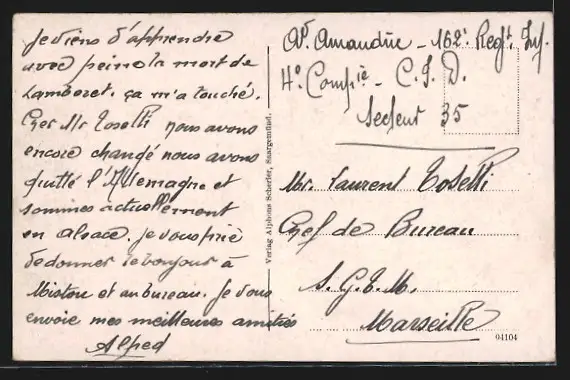 Je viens d'apprendre
avec peine la mort de
Lamberet. ça m'a touché.
Cher Mr Tosetti nous avons
encore changé nous avons
quitté l'Allemagne et
sommes actuellement
en Alsace. Je vous prie
de donner le bonjour à
Miston et au bureau. Je vous
envoie mes meilleures amitiés
Alfred
Verlag Alphons Scherier, Saargemünd.
Ad. Amandric - 162e Regt. Inf.
4e Compie - C.I.D.
Secteur 35
Mr. Laurent Tosetti
Chef de Bureau
S.G.T.M.
Marseille
04104